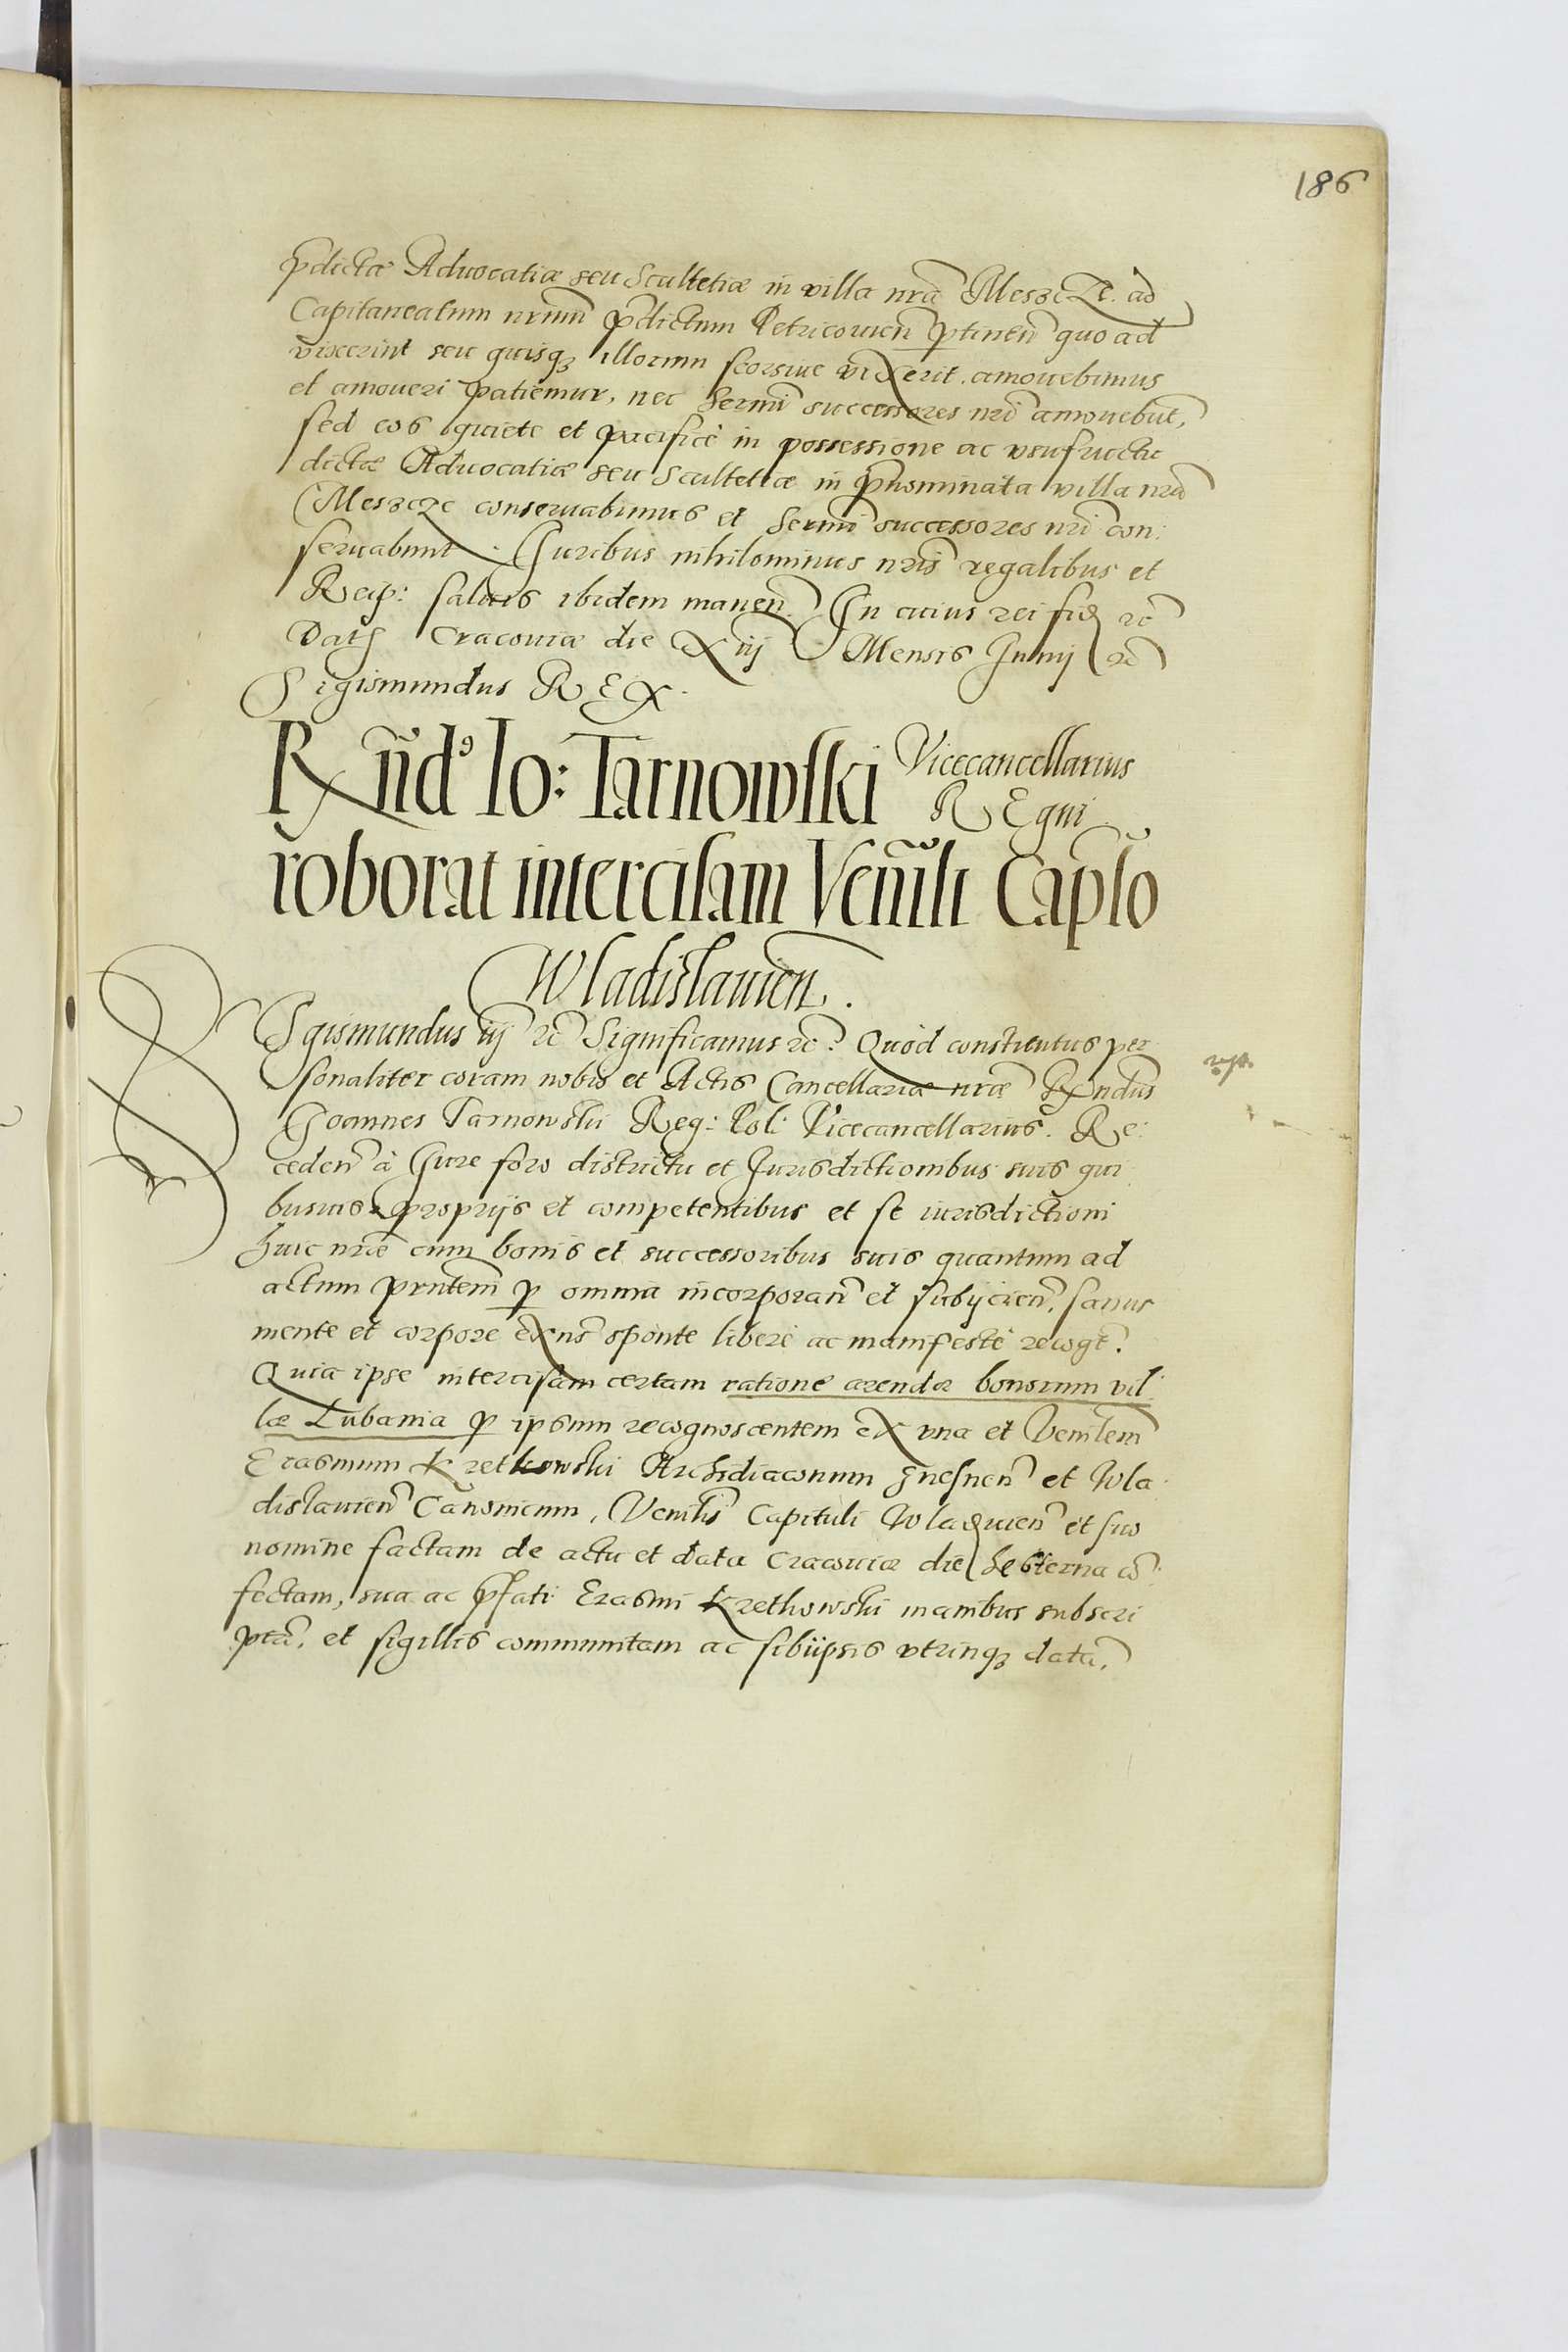 186
p̄dictæ Advocatiæ seu Scultetiæ in villa nr̃a Meszcze ad
Capitaneatum nr̃um p̄dictum Petricovien̄ ꝑtinen̄ quo ad
vixerint seu quisq₃ illorum seorsive vixerit, amovebimus
et amoveri patiemur, nec Sermi successores nr̃i amovebũt,
sed eos quiete et pacificè in possessione ac usufructu
dictæ Advocatiæ seu Scultetiæ in p̄nominata villa nr̃a
Meszcze conservabimus et Sermi successores nr̃i con:
servabunt. Juribus nihilominus nr̃is regalibus et
Reip: salvis ibidem manen̄. In cuius rei fid ꝛc̄
Dat Cracoviæ die xiij Mensis Junij ꝛc̄
Sigismundus REX.
Rx̃ñdꝰ Io: Tarnowski Vicecancellarius
REgni
roborat intercisam Ven̄ili Capl̃o
Wladislavien̄.
SIgismundus iij ꝛc̄ Significamus ꝛc̄. Quòd constitutus per
sonaliter coram nobis et Actis Cancellariæ nr̃æ Rx̃ndus
Joannes Tarnowski Reg: Pol: Vicecancellarius. Re:
ceden̄ à Jure foro districtu et Jurisdictionibus suis qui
busvis proprijs et competentibus et se iurisdictioni
huic nr̃æ cum bonis et successoribus suis quantum ad
actum prñtem ꝑ omnia incorporan̄ et subijcien̄, sanus
mente et corpore exñs sponte liberè ac manifestè recogt̃.
Quia ipse intercisam certam ratione arendæ bonorum vil:
læ Lubania ꝑ ipsum recognoscentem ex una et Venilem
Erasmum Kretkowski Archidiaconum Gnesnen̄ et Wla
dislavien̄ Canonicum, Venilis Capituli Wladvien̄ et suo
nomine factam de actu et data Cracoviæ die hesterna cõ:
fectam, sua ac p̄fati Erasmi Krethowski manibus subscri
ptã, et sigillis communitam ac sibiipsis utrinq₃ datã,